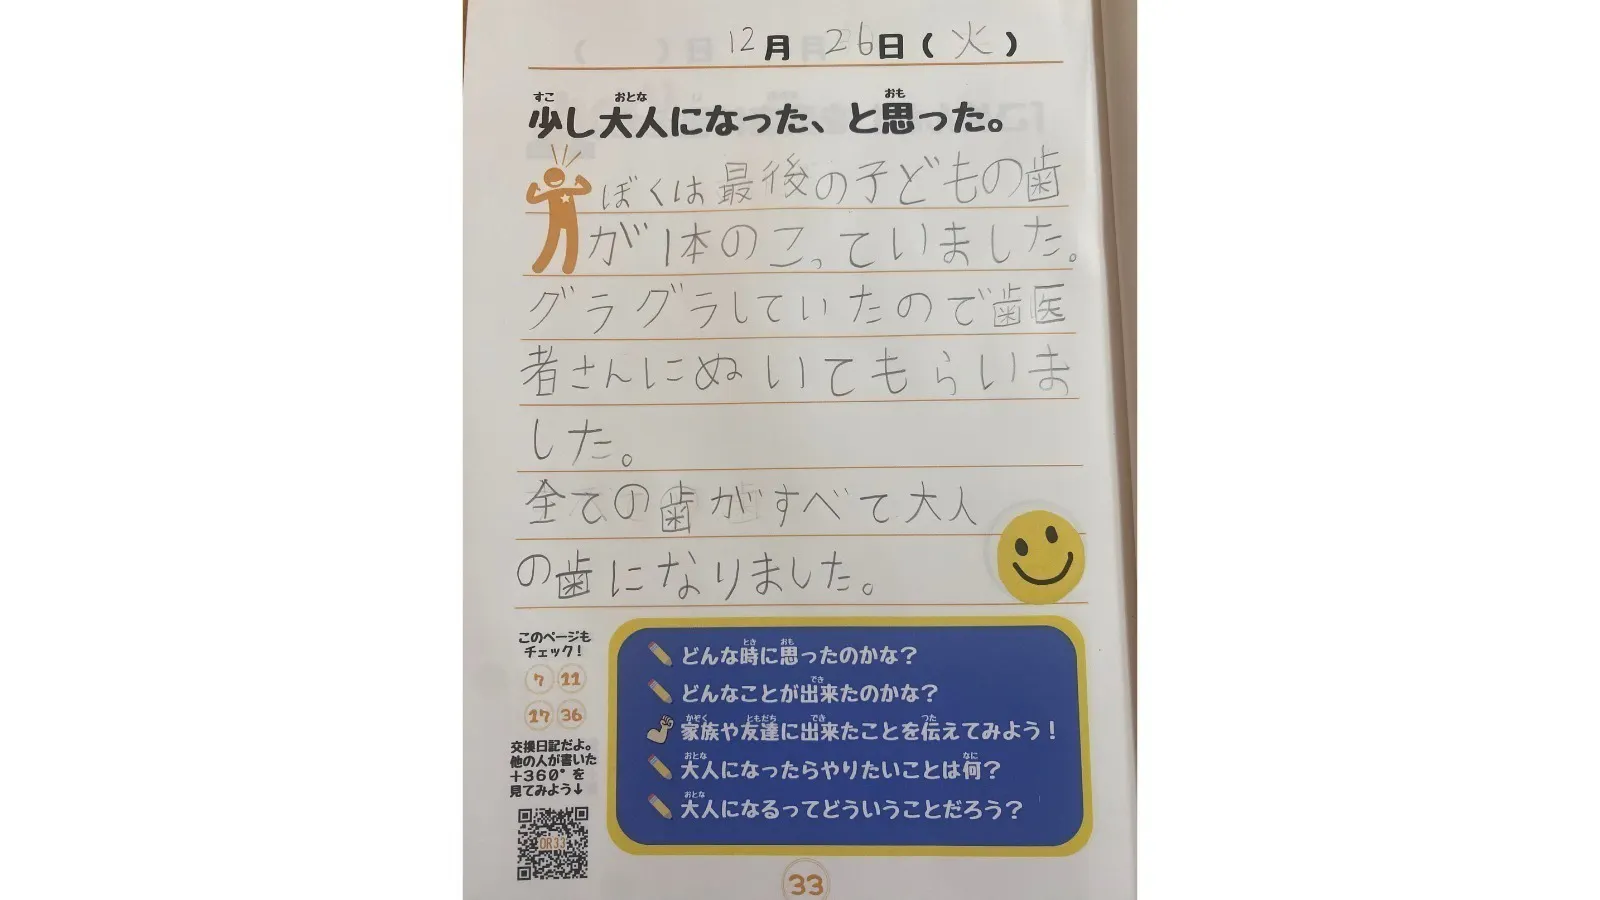 12月26日(火)
少し大人になった、と思った。
ぼくは最後の子どもの歯
が1本のこっていました。
グラグラしていたので歯医
者さんにぬいてもらいま
した。
全ての歯がすべて大人
の歯になりました。
このページも
チェック!
7 11
17 36
交換日記だよ。
他の人が書いた
+360°を
見てみよう↓
QR33
どんな時に思ったのかな?
どんなことが出来たのかな?
家族や友達に出来たことを伝えてみよう!
大人になったらやりたいことは何?
大人になるってどういうことだろう?
33